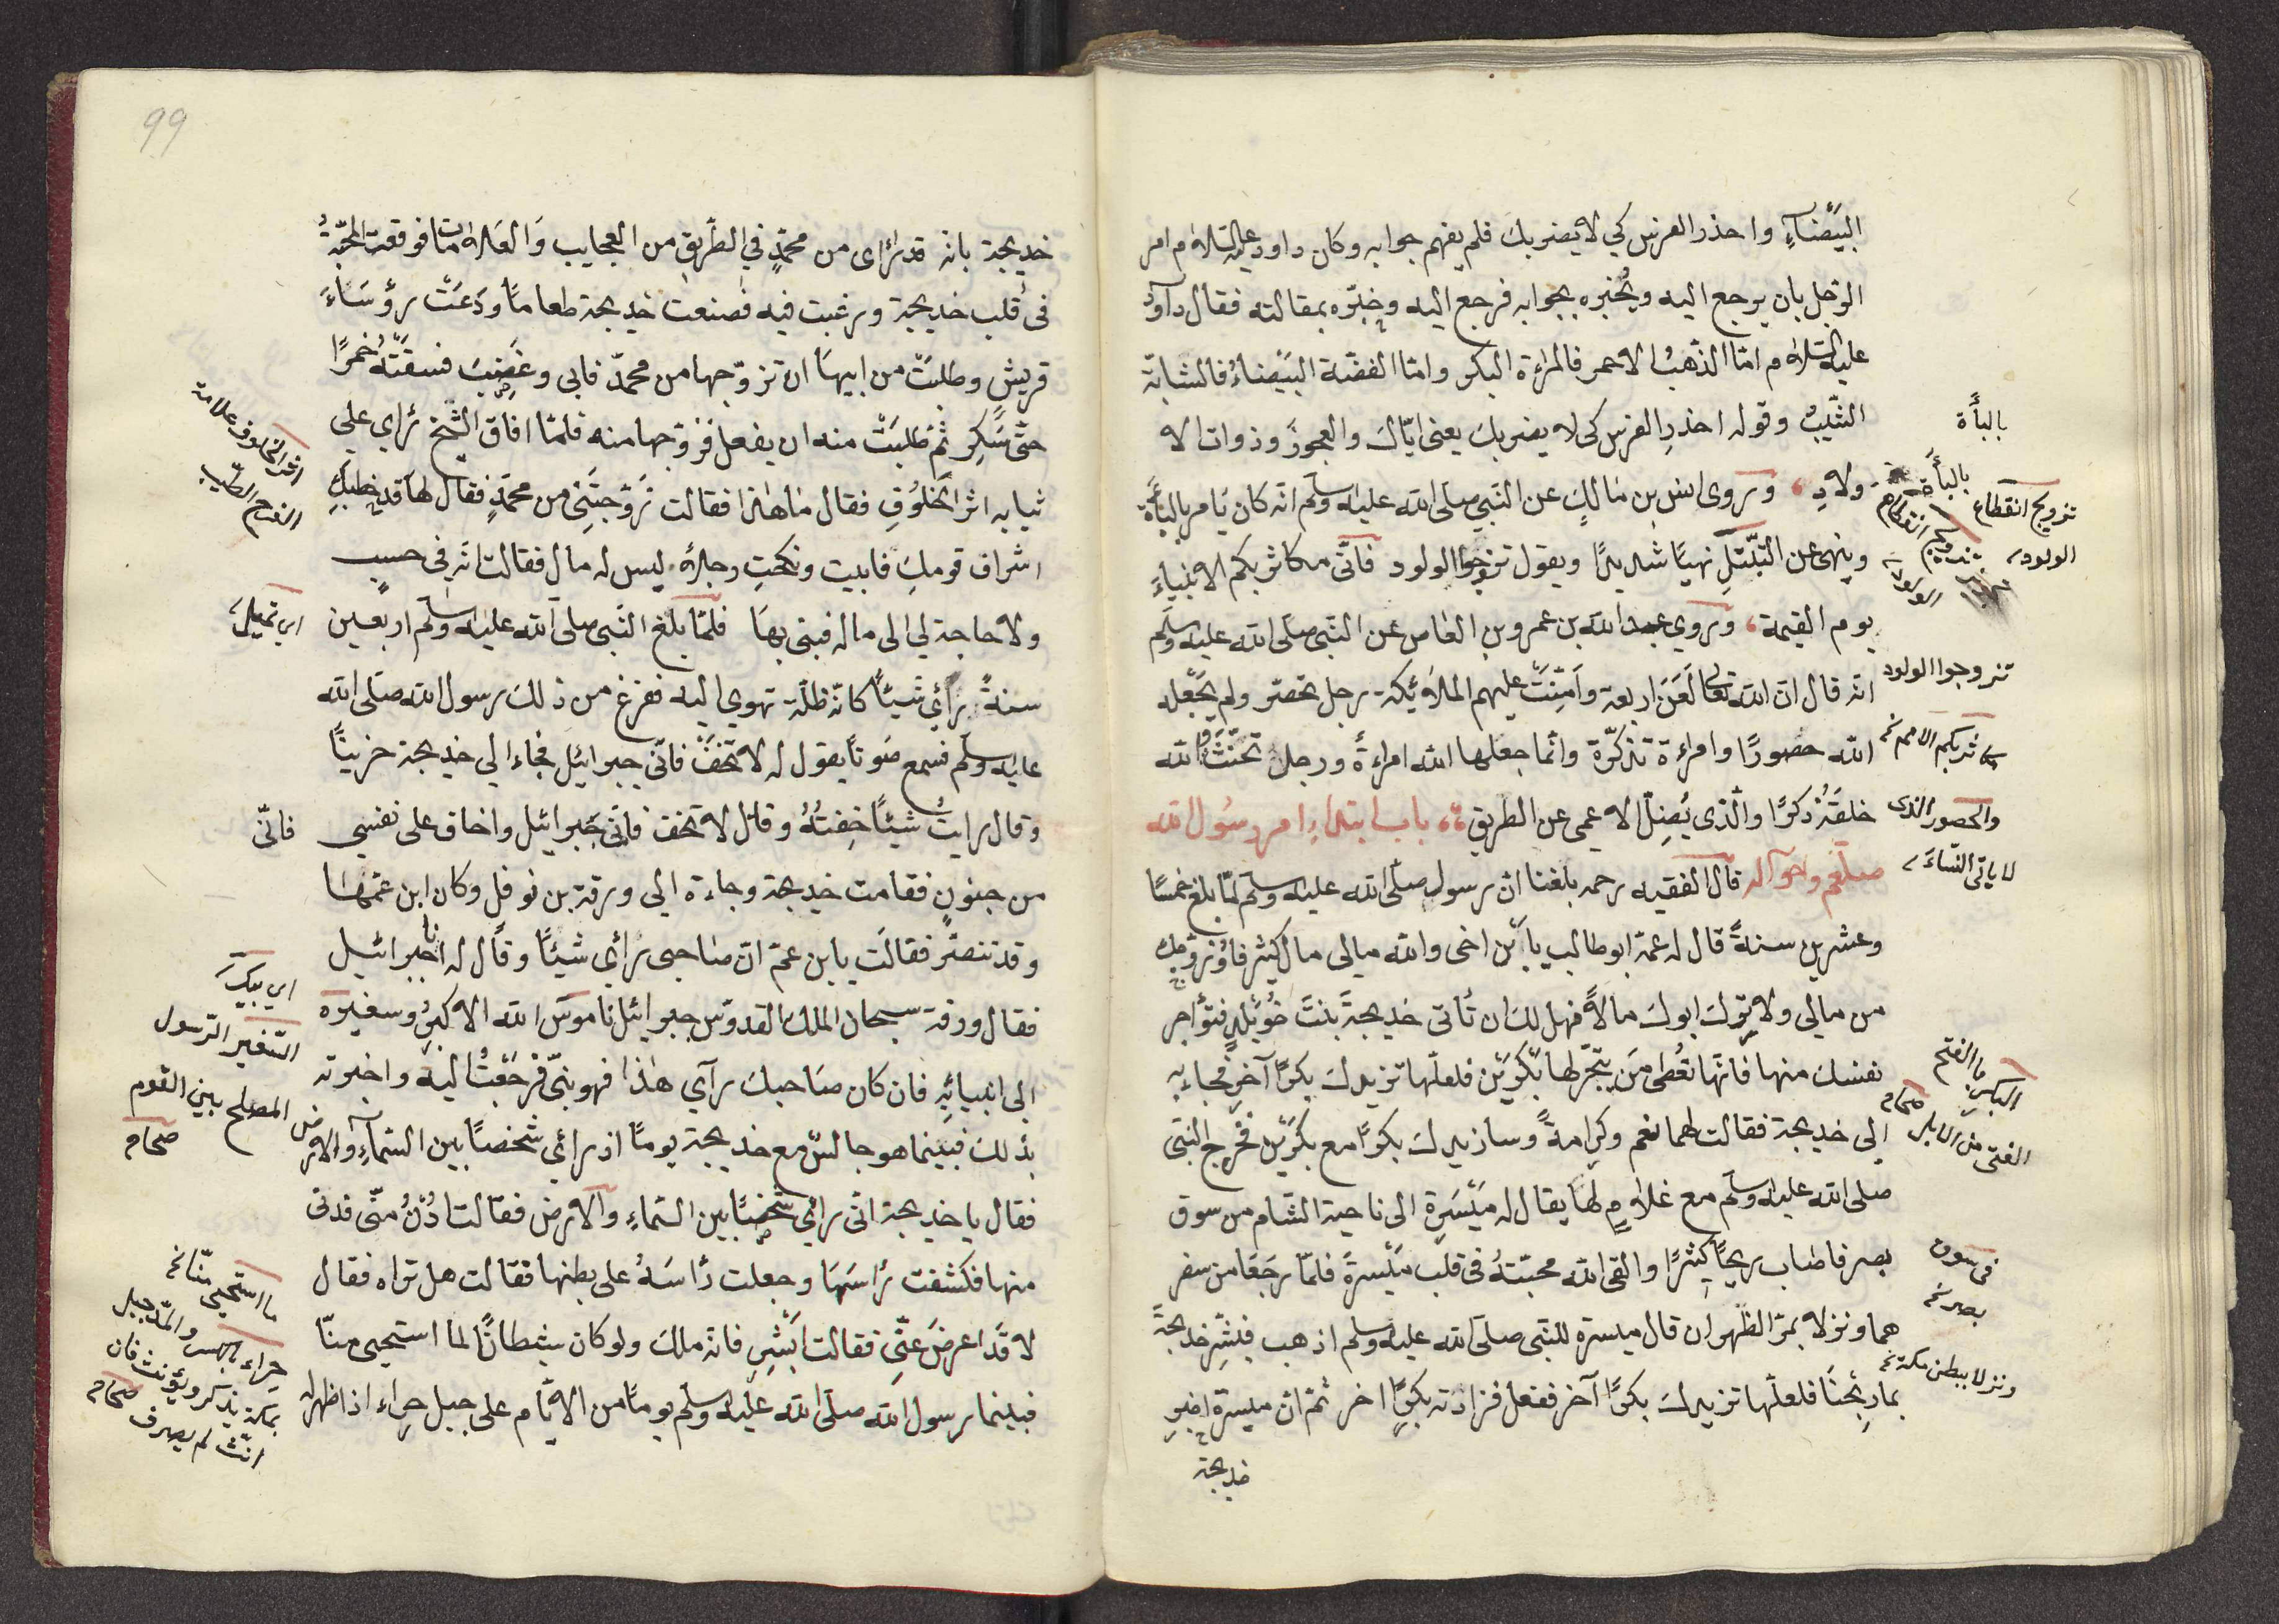 البَيْضَآءِ واحذر الفرس كي لا يضربك فلم يفهم جوابه وكان داود عليه السّلام امر
الرّجل بان يرجع اليه ويُخبره بجوابه فرجع اليه وخبّره بمقالته فقال داود
عليه السّلام امّا الذّهبُ الاحمر فالمراءة البكر وامّا الفضّة البَيْضاءُ فالشابة
الثّيّبُ وقوله احذرِ الفرس كى لا يضربك يعنى ايّاك والعجوزَ وذوات الا
ولادِ ، وروى انس بن مَالكٍ عن النّبي صلى الله عليه وسلّم انّه كان يَامر بالبأة
وينهى عن التّبتّلِ نهيًا شديدًا ويقول تزوجوا الولود فانّى مكاثر بكم الانبياءَ
يوم القيمة ، وروي عبد الله بن عمرو بن العَاص عن النّبى صلّى الله عليه وسلم
انّه قال انّ الله تعالى لَعَنَ اربعة واَمِّنَتْ عليهم الملائيكة رجل تحصّر ولم يَجْعله
الله حصورًا وامراءة تذكّرة وانّما جعلها الله امراءةً ورجلٌ تخنّثَ والله
خلقَهُ ذكرًا والّذى يُضِلّ الاعمى عن الطريق ،، باب ابتداءِ امر رسُول الله
صلعم واحواله قال الفقيه رحمه بلغنا انّ رسول صلّى الله عليه وسلّم لمّا بلغ خمسًا
وعشرين سنةً قال له عمّه ابو طالب يا ابْن اخى والله مالى مال كثير فاُزوّجك
من مالى ولا ترك ابوك مالاً فهل لك ان تأتى خديجةَ بنتَ خُوَيْلدٍ فتؤاجر
نفسك منها فانّها تعُطى مَن يتّجر لها بَكْرَيْن فلعلّها تزيدك بكرًا آخر فجاء به
الى خديجة فقالت لهما نعم وكرامةً وسازيدك بكرًا مع بكرَيْن فخرج النّبىّ
صلى الله عليه وسلّم مع غلامٍ لهَا يقال له مَيْسَرة الى ناحية الشّام من سوق
بصر فاصاب ربحًا كثيرًا والقى الله محبّتهُ فى قلب مَيْسرةَ فلمّا رجَعَا من سفر
هما ونزلا بمرّ الظّهران قال ميسرة للنّبى صلّى الله عليه وسلم اذهب فبشّر خديجةَ
بما ربحْنَا فلعلّها تزيدك بكرًا آخر ففعل فزادته بكرًا اخر ثمّ انّ ميسرة اخبر
خديجة
بالبأة
تزويج انقطاع
الولود
تزوجوا الولود
مكاثر بكم الامم نخ
والحصور الذى
لا ياتى النّساءَ
البكر بالفتح
الفتى من الابل صحاح
فى سوق
بصر نخ
ونزلا ببطن مكة نخ
99
خديجة بانّه قد رَاى من محمّدٍ في الطّريق من العجايب وَالعَلامَات فوقعت المحبّةُ
فى قلب خديجة ورغبت فيه فصنعت خديجة طعامًا ودَعَتْ رؤسَاءَ
قريش وطلبَتْ من ابيهَا ان تزوّجها من محمدّ فابى وغَضِبَ فسقَتْهُ خمرًا
حتّى سَكِر ثمّ طلبَتْ منه ان يفعل فزوّجها منه فلمّا افاق الشّيخ رَاي على
ثيابه اثر الخلوُقِ فقال مَا هٰذا فقالت زَوّجتَنِىْ من محمّدٍ فقال لهَا قد خطبكِ
اشراف قومكِ فابيت ونكحتِ رجلاً ليس له مال فقالت انّه فى حسبٍ
ولا حاجة لي الى ماله فبنى بهَا فلمّا بلغ النّبى صلى الله عليه وسلّم اربعين
سنةً رَأي شيئًا كانّه ظلّة تهوي اليه ففزع من ذلك رسول الله صلّى الله
عليه وسلّم فسمع صَوتًا يقول له لا تخفْ فانّى جبرائيل فجاء الي خديجة حزينًا
وقال رايتُ شيئًا خِفتُهُ وقال لا تخف فانّى جَبرائيل واخاف على نفسي
من جنونٍ فقامت خديجة وجاءة الى ورقة بن نوفل وكان ابن عمّهَا
وقد تنصّر فقالَت يابن عمّ انّ صَاحبى رَأي شيئًا وقَال له انا جبرائيل
فقال ورقة سبحان الملك القدوّس جبرائيل ناموسَ الله الاكبرُ وسفيره
الى انبيائِهِ فان كان صَاحبكَ رآي هٰذا فهو نبىّ فرَجَعْتُ اليه واخبرته
بذلك فبينما هو جالسٌ مع خديجة يومًا اذ رأي شخصًا بين السّماءِ والارض
فقال يا خديجة انّى رأي شخصًا بين السّماءِ والارض فقالت ادُنُ منّى فدنى
منها فكشفت رَاسَهَا وجعلت رأسَهُ على بطنها فقالت هل تراه فقال
لا قَد اعرضَ عنّى فقالت ابَشِر فانّه ملك ولو كان شيطانًا لما استحيى منّا
فبينما رسول الله صلّى الله عليه وسلّم يومًا من الايّام على جبل حِراء اذا ظهر له
اثر الخلوف علامة
الفرح الطيب
فانّى
السّفير الرّسول
المصلح بين القوم
صحاح
ما استحيى منّا نخ
حراء بالكسر والمدّ جبل
بمكة يذكر ويؤنث فان
انّث لم يصرف صحاح